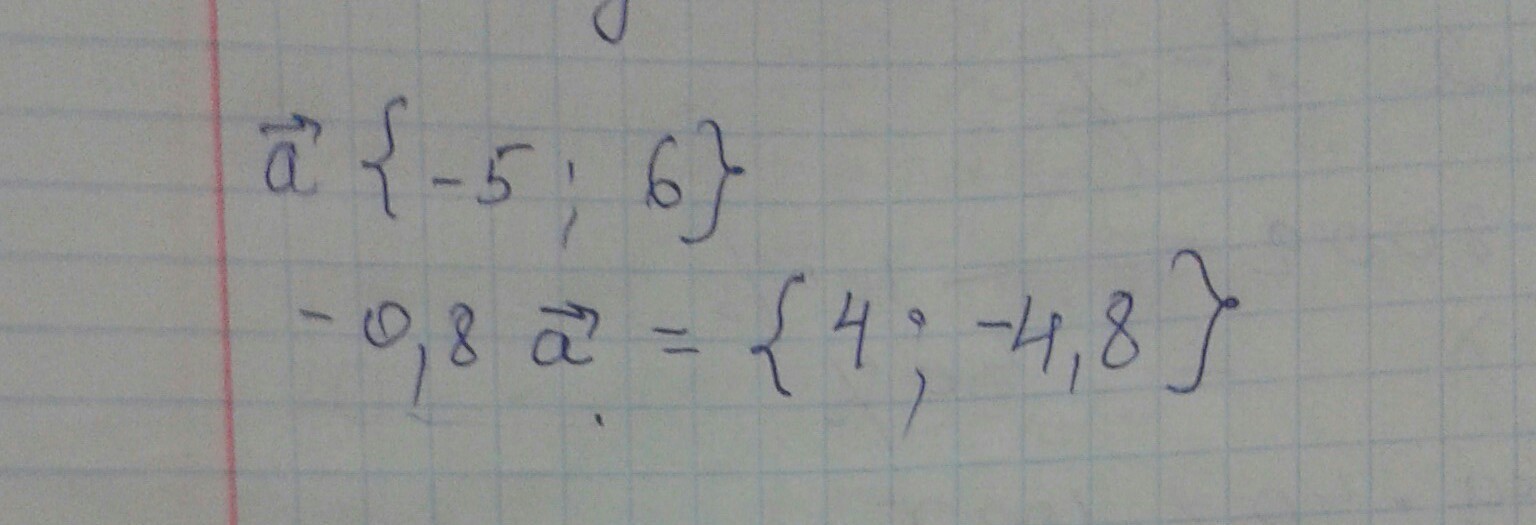 a⃗ {-5; 6}
-0,8 a⃗ = {4; -4,8}